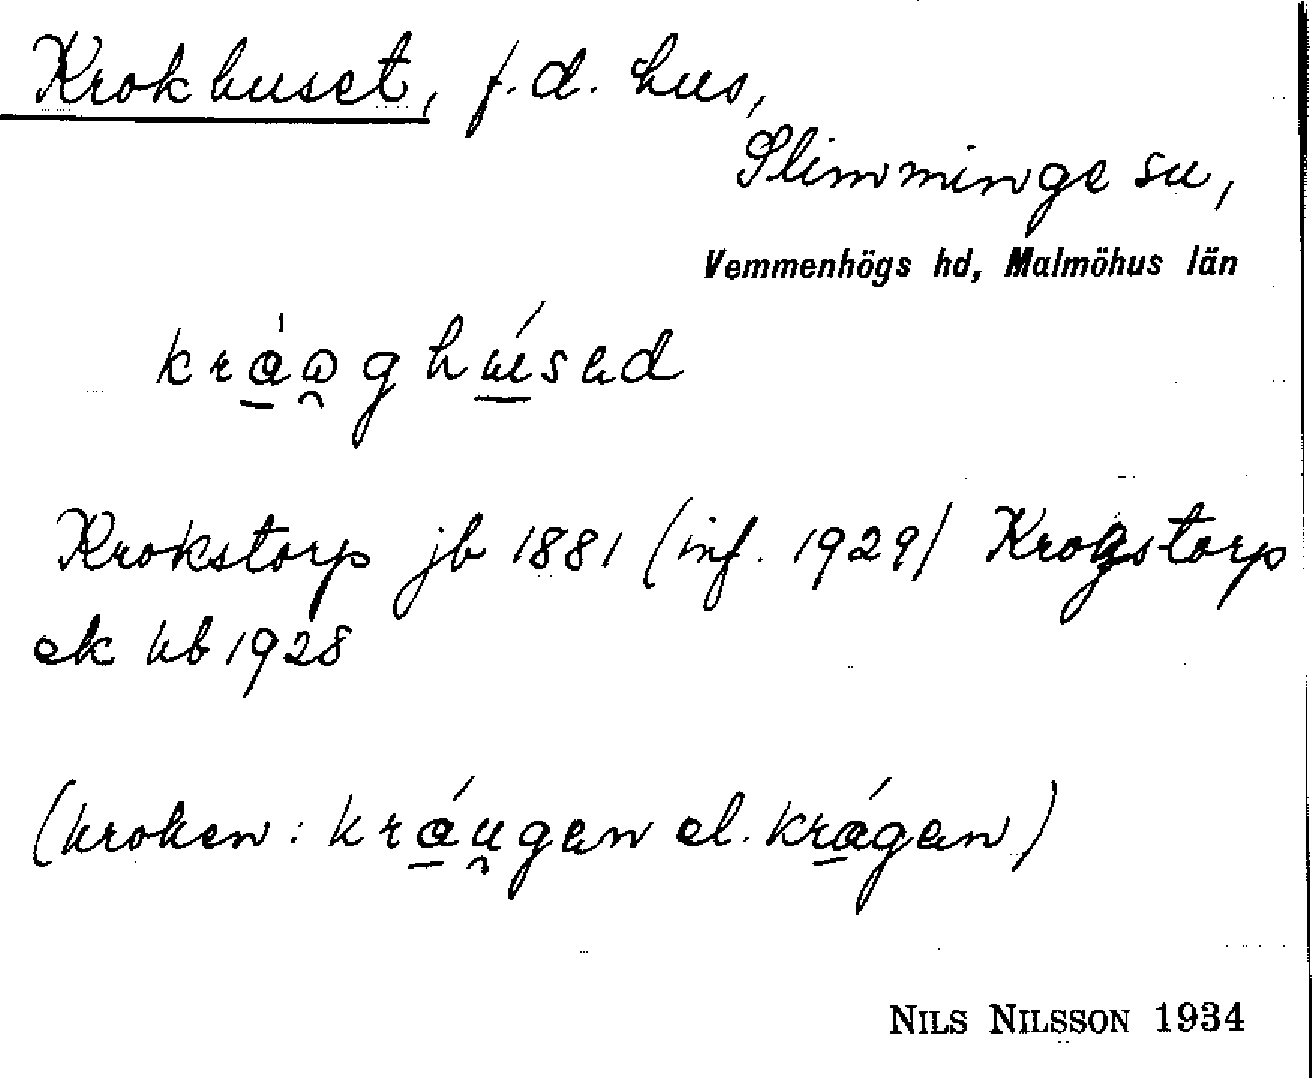 Krokhuset, f.d. hus,
Slimminge sn,
Vemmenhögs hd, Malmöhus län
kráωghúsad
Krokstorp jb 1881 (inf. 1929) Krogstorp
ek kb 1928
(kroken: kráugan el. krágan)
NILS NILSSON 1934